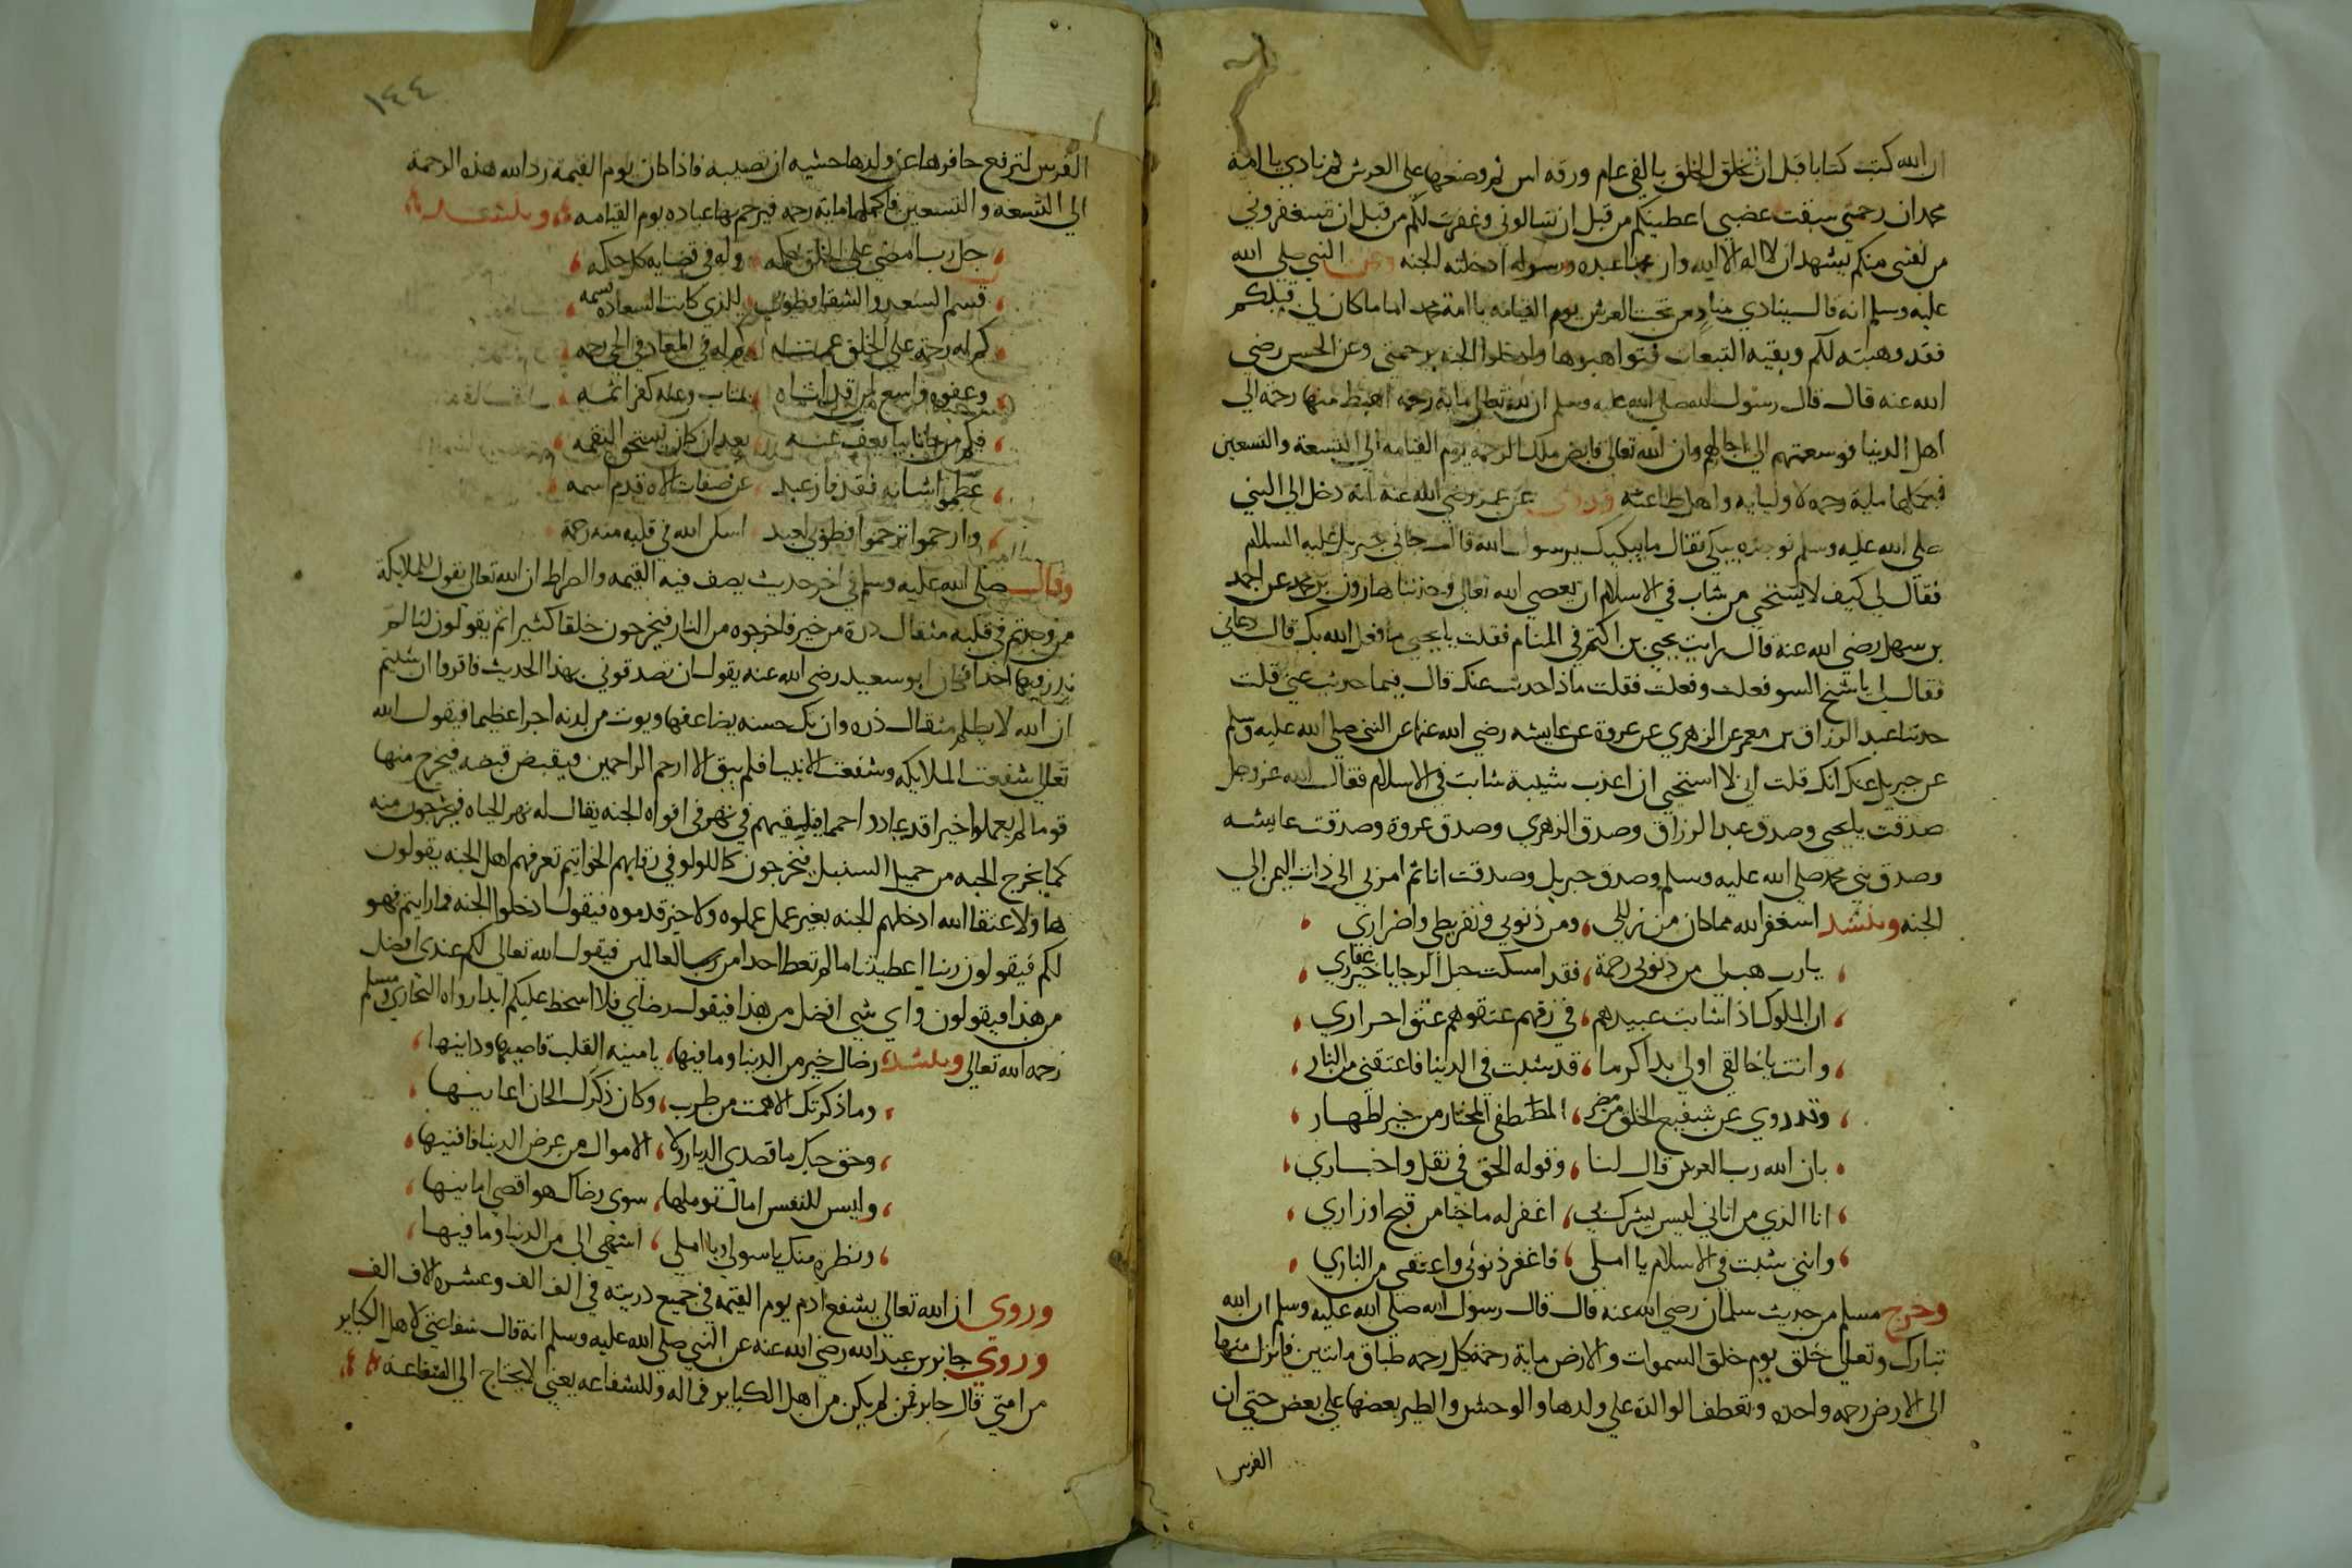 ان الله كتب كتابا قبل ان يخلق الخلق بالفي عام ورقه اس ثم وضعها على العرش ثم نادي يا امة
محمد ان رحمتي سبقت غضبي اعطيتكم من قبل ان تسالوني وغفرت لكم من قبل ان تستغفروني
من لقني منكم يشهد ان لا اله الا الله وان محمدا عبده ورسوله ادخلته الجنه وعن النبي صلى الله
عليه وسلم انه قال سينادي مناد من تحت العرش يوم القيامه يا امة محمد اما ما كان لي قبلكم
فقد وهبته لكم وبقيه التبعات فتواهبوها وادخلوا الجنه برحمتي وعن الحسن رضي
الله عنه قال قال رسول الله صلى الله عليه وسلم ان لله تعالى ماية رحمه اهبط منها رحمة الي
اهل الدنيا فوسعتهم الي اجالهم وان الله تعالى قابض تلك الرحمه يوم القيامه الي التسعة والتسعين
فيكملها ماية رحمه لاوليايه واهل طاعته وروي عن عمر رضي الله عنه انه دخل الي النبي
صلى الله عليه وسلم فوجده يبكي فقال ما يبكيك يرسول الله قال جاني جبريل عليه السلام
فقال لي كيف لا يستحي من شاب في الاسلام ان يعصي الله تعالى وحدثنا هارون بن محمد عن احمد
بن سهل رضي الله عنه قال رايت يحيى بن اكتم في المنام فقلت يا يحيي ما فعل الله بك قال دعاني
فقال لي يا شيخ السو فعلت وفعلت فقلت ماذا حدثت عنك قال فيما حدثت عني قلت
حدثنا عبد الرزاق بن معمر عن الزهري عن عروة عن عايشه رضي الله عنها عن النبي صلى الله عليه وسلم
عن جبريل عنك انك قلت اني لا استحي ان اعذب شيبة شابت في الاسلام فقال الله عز وجل
صدقت يا يحيى وصدق عبد الرزاق وصدق الزهري وصدق عروة وصدقت عايشه
وصدق نبي محمد صلى الله عليه وسلم وصدق جبريل وصدقت انا ثم امر بي الى ذات اليمن الي
الجنه وينشد استغفر الله مما كان من زللي ، ومن ذنوبي وتفريطي واضراري
يا رب هب لي من ذنوبي رحمة ، فقد امسكت حبل الرجا يا خير غفاري
ان الملوك اذا شابت عبيدهم ، في رقهم عتقوهم عتق احراري
وانت يا خالقي اولى بدا كرما ، قد شبت في الدنيا فاعتقني من النار
وقد روي عن شفيع الخلق من مضر ، المصطفى المختار من خير اطهار
بان الله رب العرش قال لنا ، وقوله الحق في نقل واخباري
انا الذي من اتاني ليس يشرك بي ، اغفر له ما جنا من قبح اوزاري
وانني شبت في الاسلام يا املي ، فاغفر ذنوبي واعتقني من الناري
وخرج مسلم من حديث سلمان رضي الله عنه قال قال رسول الله صلى الله عليه وسلم ان الله
تبارك وتعالى خلق يوم خلق السموات والارض ماية رحمة كل رحمه طباق مابين فانزل منها
الى الارض رحمه واحده وتعطف الوالدة على ولدها والوحش والطير بعضها علي بعض حتي ان
الفرس
١٤٤
الفرس لترفع حافرها عن ولدها خشيه ان تصيبه فاذا كان يوم القيمة رد الله هذه الرحمة
الي التسعه والتسعين فاكملها ماية رحمه فيرحم بها عباده يوم القيامه وينشد
جل رب امضى على الخلق حكمه ، وله في قضايه كل حكمه
قسم السعد والشقا فطوبى ، للذي كانت السعاده قسمه
كم له رحمة علي الخلق عمت ، كم له في المعاد في الحي رحمه
وعفوه واسع لمن قد اتاه ، بمتاب وعله كفر اثمه
فكم من جانيا يعف عنه ، بعد ان كان يستحق النقمه
عظموا شانه فقد فاز عبد ، عن صفات الاه قدم اسمه
وارحموا ترحموا فطوبى لعبد ، اسكن الله في قلبه منه رحمة
وقال صلى الله عليه وسلم في اخر حديث يصف فيه القيمه والصراط ان الله تعالى يقول للملايكة
من وجدتم في قلبه مثقال ذرة من خير فاخرجوه من النار فيخرجون خلقا كثيرا ثم يقولون ربنا لم
نذر فيها احدا فكان ابو سعيد رضي الله عنه يقول ان تصدقوني بهذا الحديث فاقروا ان شيتم
ان الله لا يظلم مثقال ذره وان تك حسنه يضاعفها ويوت من لدنه اجرا عظيما فيقول الله
تعالى شفعت الملايكه وشفعت الانبيا فلم يبق الا ارحم الراحمين فيقبض قبضه فيخرج منها
قوما لم يعملوا خيرا قد عادوا حمما فيلقيهم في نهر في افواه الجنه يقال له نهر الحياه فيخرجون منه
كما يخرج الحبه من حميل السنبل فيخرجون كاللولو في رقابهم الخواتيم تعرفهم اهل الجنه يقولون
هاولا عتقا الله ادخلهم الجنه بغير عمل عملوه ولا خير قدموه فيقول ادخلوا الجنه فما رايتم فهو
لكم فيقولون ربنا اعطيتنا ما لم تعط احدا من رب العالمين فيقول الله تعالى لكم عندي افضل
من هذا فيقولون واي شي افضل من هذا فيقول رضاي فلا اسخط عليكم ابدا رواه البخاري ومسلم
رحمه الله تعالى وينشد ، رضاك خير من الدنيا وما فيها ، يا منيه القلب قاصيها ودانيها
وما ذكرتك الا همت من طرب ، وكان ذكرك الحان اغانيها
وحق حبك ما قصدي الديار ولا ، الاموال من عرض الدنيا فافنيها
وليس للنفس امال تؤملها ، سوى رضاك هو اقصى امانيها
ونظره منك يا سولي ويا املي ، اشهى الي من الدنيا وما فيها
وروي ان الله تعالى يشفع ادم يوم القيمه في جميع ذريته في الف الف وعشره الاف الف
وروي جابر بن عبد الله رضي الله عنه عن النبي صلى الله عليه وسلم انه قال شفاعتي لاهل الكباير
من امتي قال جابر فمن لم يكن من اهل الكباير فما له وللشفاعه يعني لا يحتاج الي الشفاعة